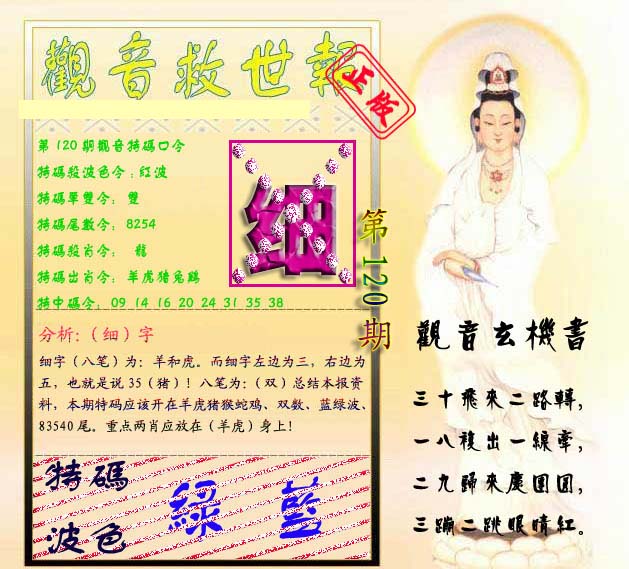 觀音救世報
正版
第120期觀音特碼口令
特碼殺波色令：紅波
特碼單雙令： 雙
特碼尾數令： 8254
特碼殺肖令： 龍
特碼出肖令： 羊虎猪兔鷄
特中碼令： 09 14 16 20 24 31 35 38
细
第120期
分析:（细）字
细字（八笔）为：羊和虎。而细字左边为三，右边为
五，也就是说 35（猪）！八笔为：（双）总结本报资
料，本期特码应该开在羊虎猪猴蛇鸡、双数、蓝绿波、
83540 尾。重点两肖应放在（羊虎）身上!
特碼
波色
綠 藍
觀音玄機書
三十飛來二路轉，
一八複出一線牽，
二九歸來慶團圓，
三蹦二跳眼睛紅。